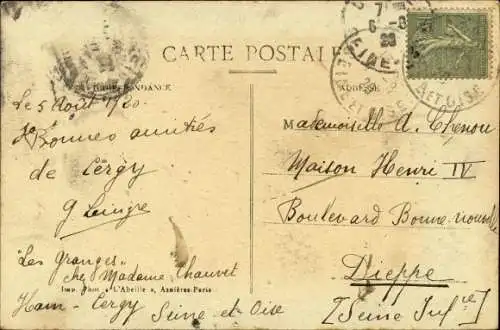 CARTE POSTALE
CORRESPONDANCE
ADRESSE
Le 5 Août 1920
Bonnes amitiés
de Cergy
"Les Granges"
chez Madame Chauvet
Ham-Cergy Seine et Oise
Imp. Phot. « L'Abeille », Asnières-Paris
Mademoiselle A. Chenou
Maison Henri IV
Boulevard Bonne-nouvelle
Dieppe
[Seine Infre]